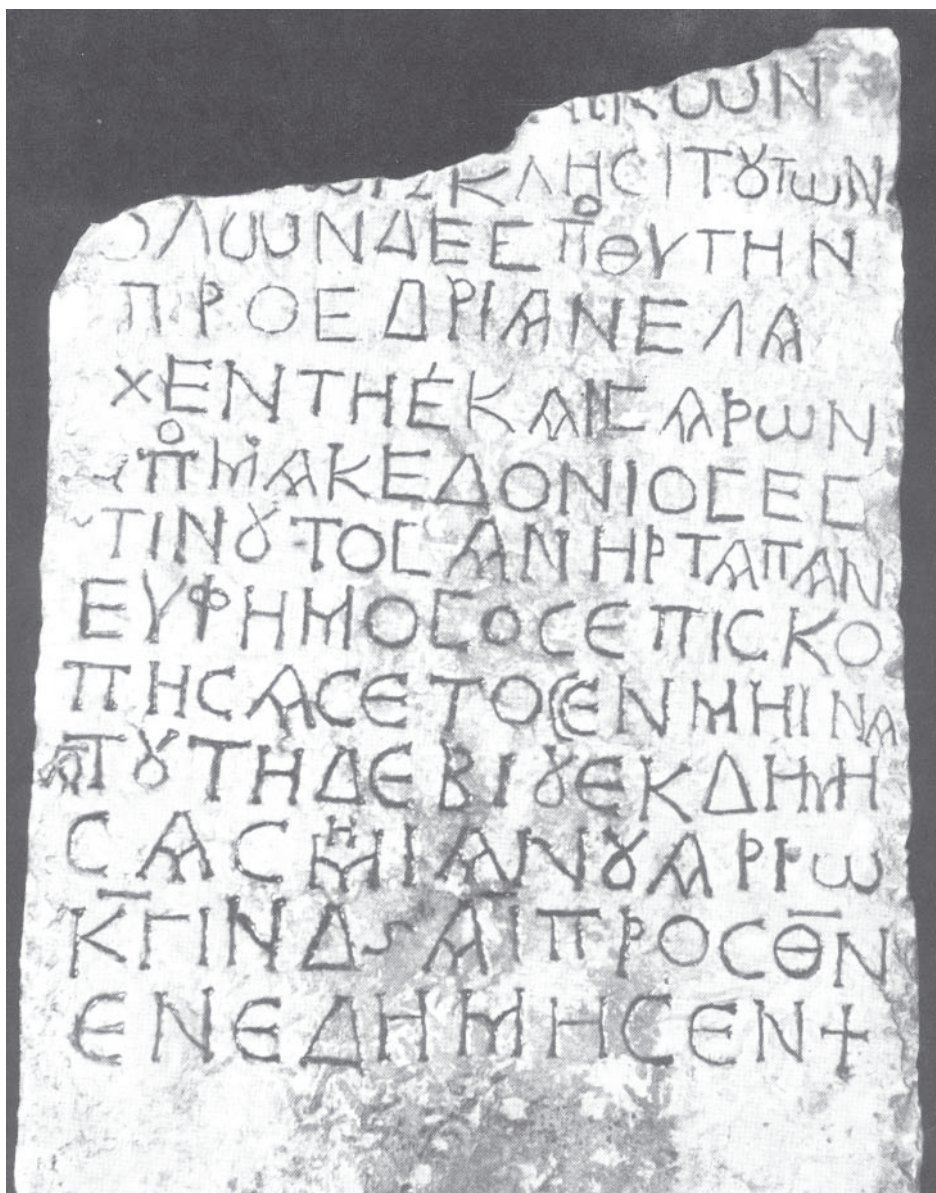 ΚΩΩΝ
ΚΛΗCΙΤȢΤΩΝ
ΟΛΩΩΝΔΕΕΠΟΘΥΤΗΝ
ΠΡΟΕΔΡΙΑΝΕΛΑ
ΧΕΝΤΗΈΚΑΙCΑΡΩΝ
ΠΟΜΑΚΕΔΟΝΙΟCΕC
ΤΙΝȢΤΟCΑΝΗΡΤΑΠΑΝ
ΕΥΦΗΜΟCΟCΕΠΙCΚΟ
ΠΗCΑCΕΤΟCΕΝΜΗΙΝΑ
ΤȢΤΗΔΕΒΙȢΕΚΔΗΜΗ
CΑCΜΗΙΑΝȢΑΡΡΙΩ
Κ̅ΓΙΝΔ𐅶Α̅ΙΠΡΟCΘ̅Ν
ΕΝΕΔΗΜΗCΕΝ+